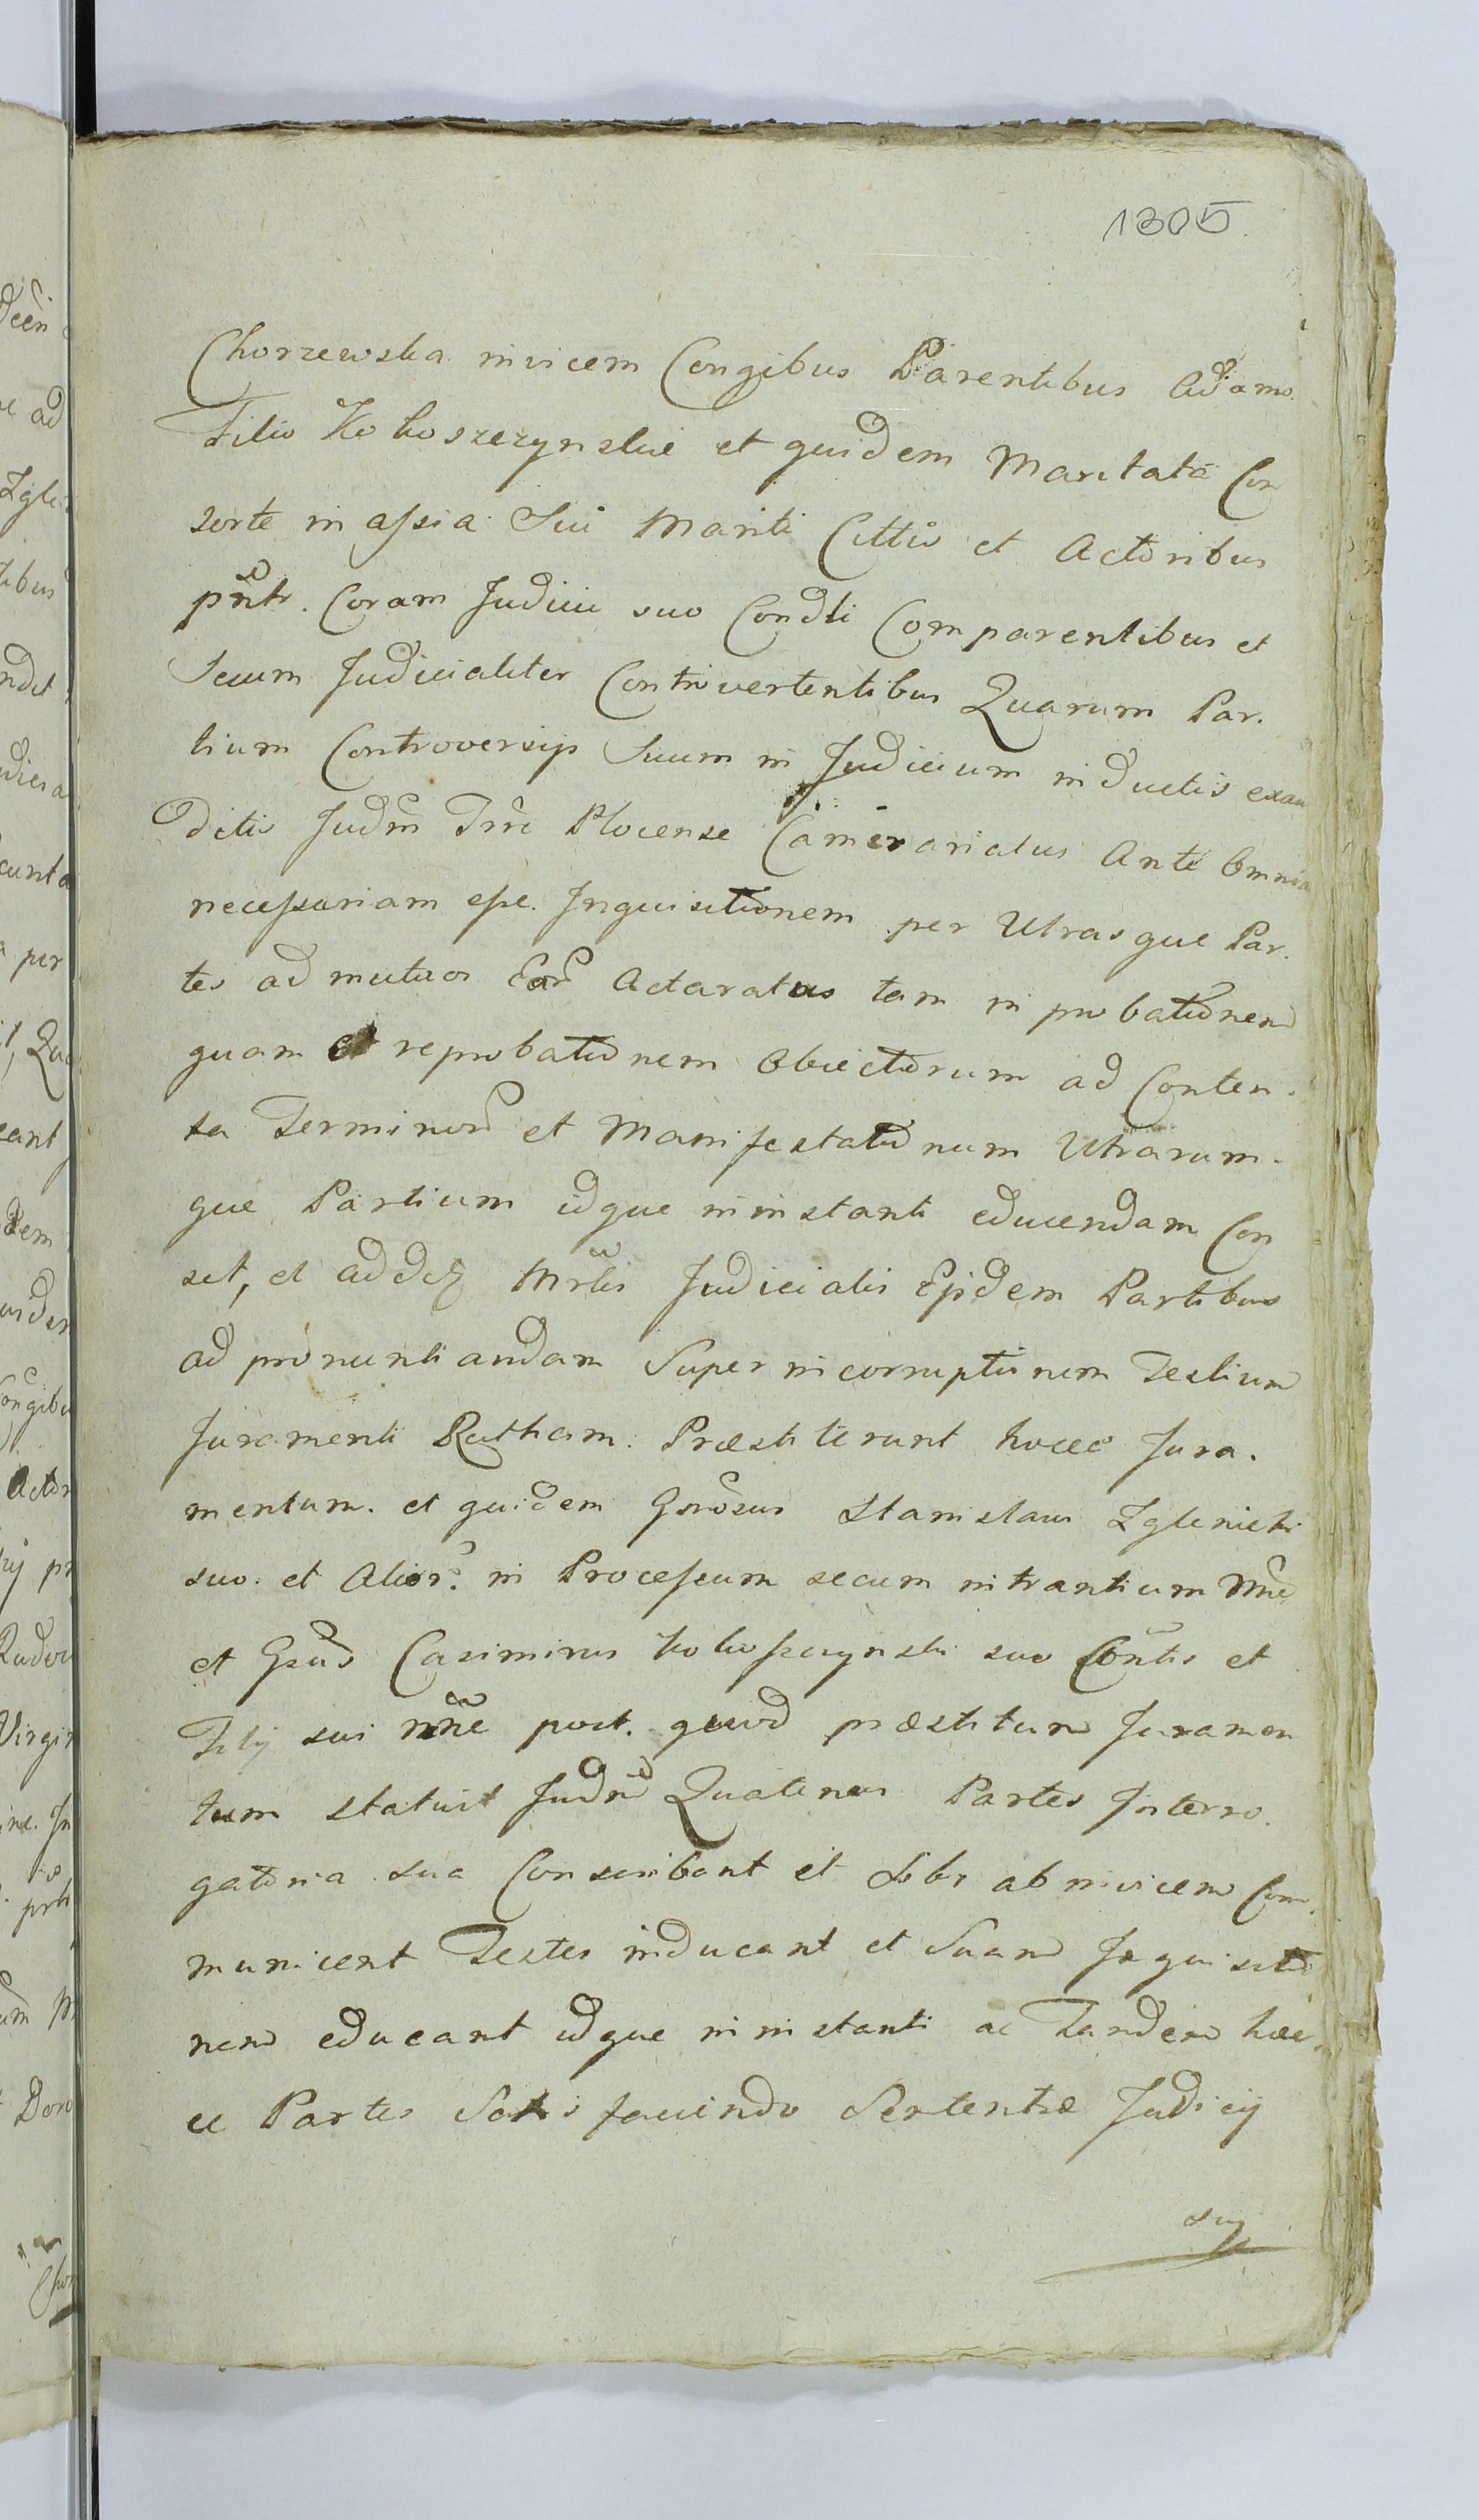 1305
Chorzewska invicem Congibus Parentibus Adamo
Filio Kokoszczynskie et quidem Maritata Con
sorte in assia Sui Mariti Cittis et Actoribus
pntr. Coram Judicii suo Condli Comparentibus et
Secum Judicialiter Controvertentibus Quarum Par.
tium Controversijs Suum in Judicium inductis exau
ditis Judm Trre Plocense Camerariatus Ante Omnia
necessariam esse Inquisitionem per Utrasque Par.
tes ad mutuos Eor Actoratus tam in probationem
quam et reprobationem Obiectorum ad Conten.
ta Terminor et Manifestationum Utrarum.
que Partium idque in instanti educendam Con
set, et addcz Mrlis Judicialis Ejsdem Partibus
ad pronuntiandam Super incorruptionem Testium
Juramenti Rotham. Præstiterunt hocce Jura.
mentum. et quidem Gnosus Stanislaus Zglenicki
suo. et Alior. in Processum secum intrantium Mne
et Gsus Casimirus Kokoszczynski suo Contis et
Filij sui nne post. quod præstitum Juramen
tum statuit Judm Quatenus Partes Interro.
gatoria sua Conscribant et Sibi ab invicem Com.
municent Testes inducant et Suam Inquisitio
nem educant idque in instanti ac Tandem hæc
ce Partes Satisfaciendo Sententiæ Judicij
sui